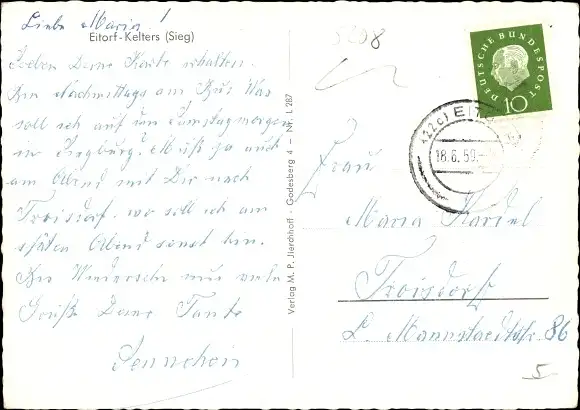 Liebe Maria!
Eitorf-Kelters (Sieg)
Soeben Deine Karte erhalten.
Bin Nachmittags am Bus Was
soll ich auf um Samstagmorgen
in Siegburg? Muß ja auch
am Abend mit Dir nach
Troisdorf. wo soll ich am
späten Abend sonst hin.
Bis Wiedersehn und viele
Grüße Deine Tante
Sennchen
Verlag M. P. Jierchhoff - Godesberg 4 - Nr. L 287
5208
DEUTSCHE BUNDESPOST
10
(22c) EITO
18.6.59.-
Frau
Maria
Troisdorf
L. Mannstaedtstr. 86
5